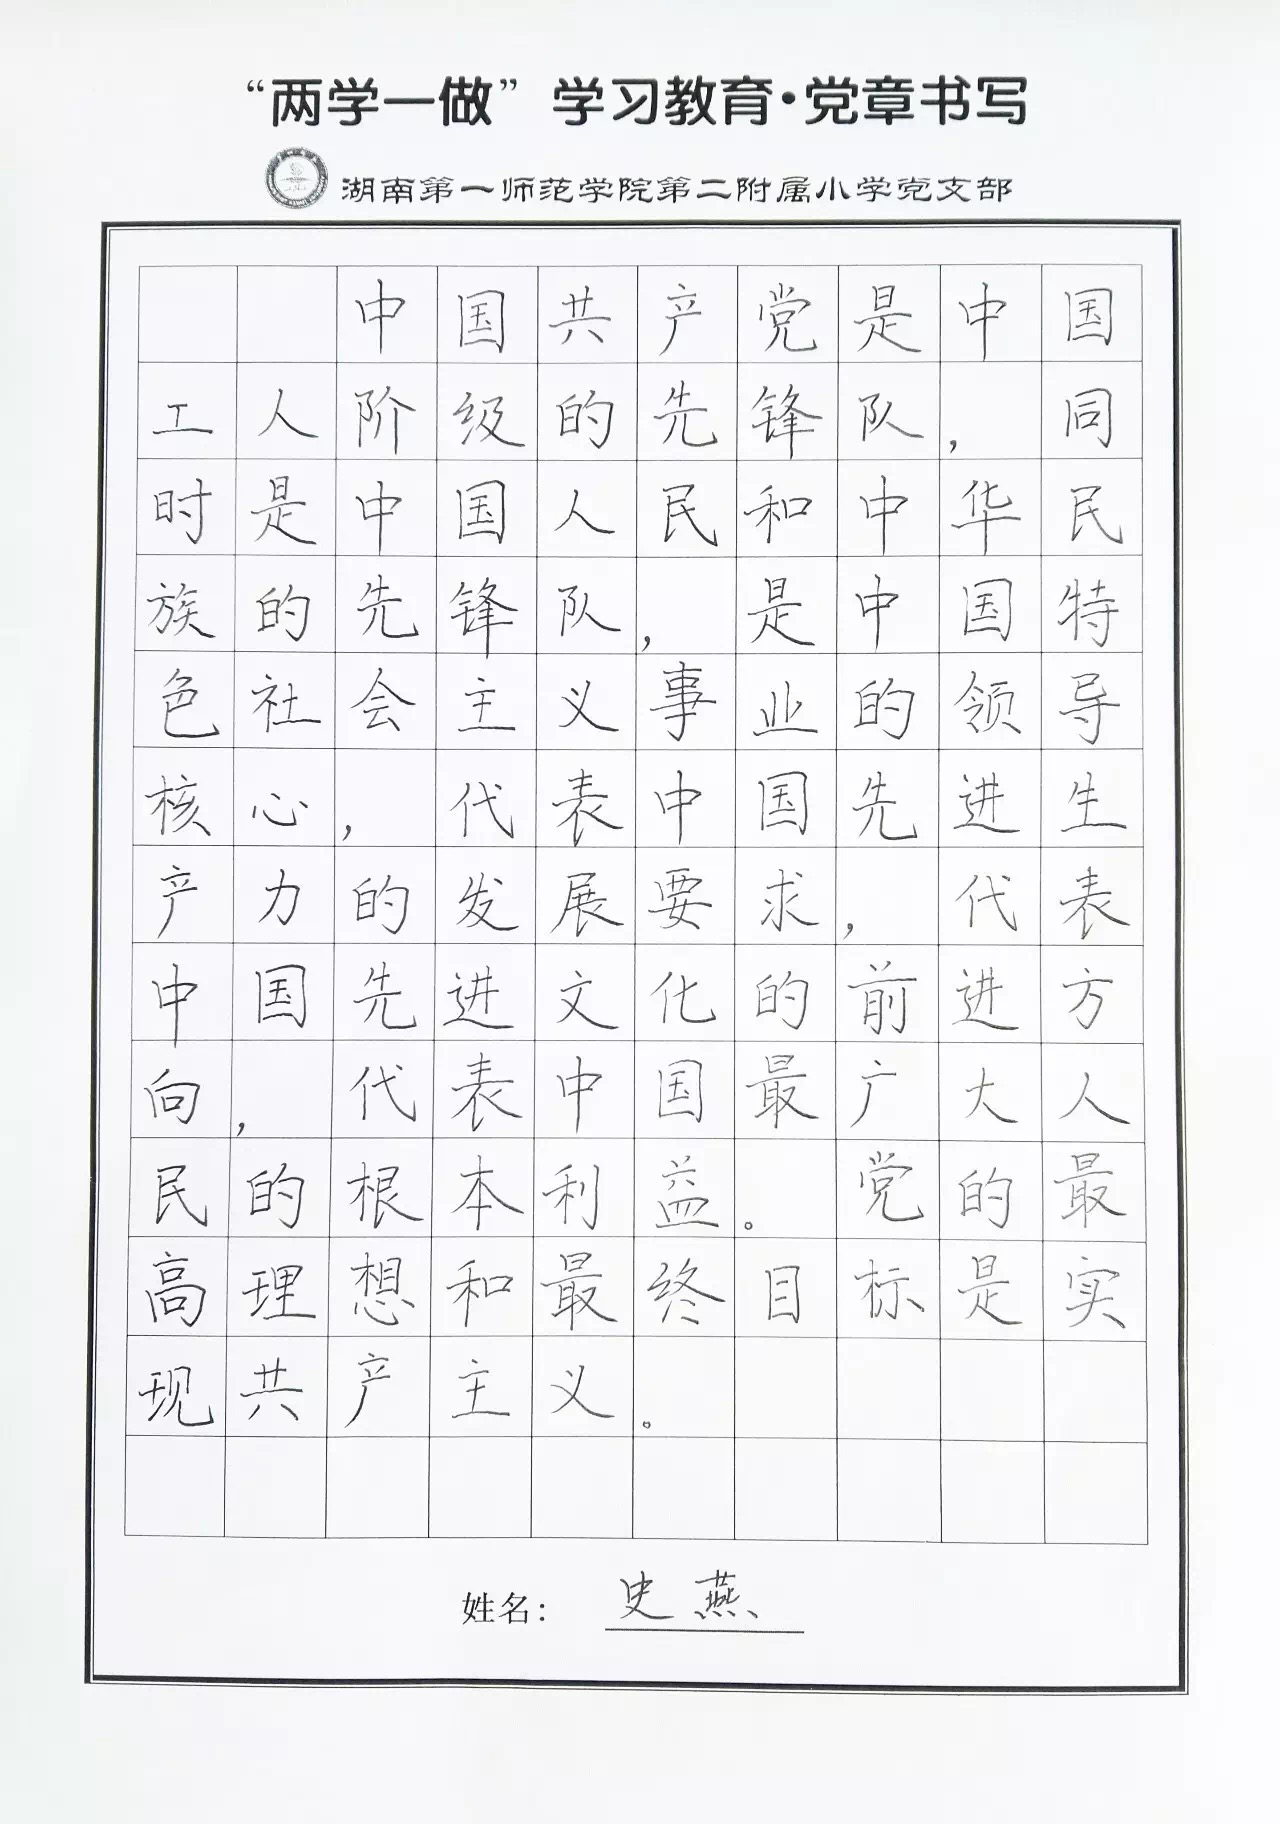 “两学一做”学习教育·党章书写
湖南第一师范学院第二附属小学党支部
中国共产党是中国
工人阶级的先锋队，同
时是中国人民和中华民
族的先锋队，是中国特
色社会主义事业的领导
核心，代表中国先进生
产力的发展要求，代表
中国先进文化的前进方
向，代表中国最广大人
民的根本利益。党的最
高理想和最终目标是实
现共产主义。
姓名：史燕